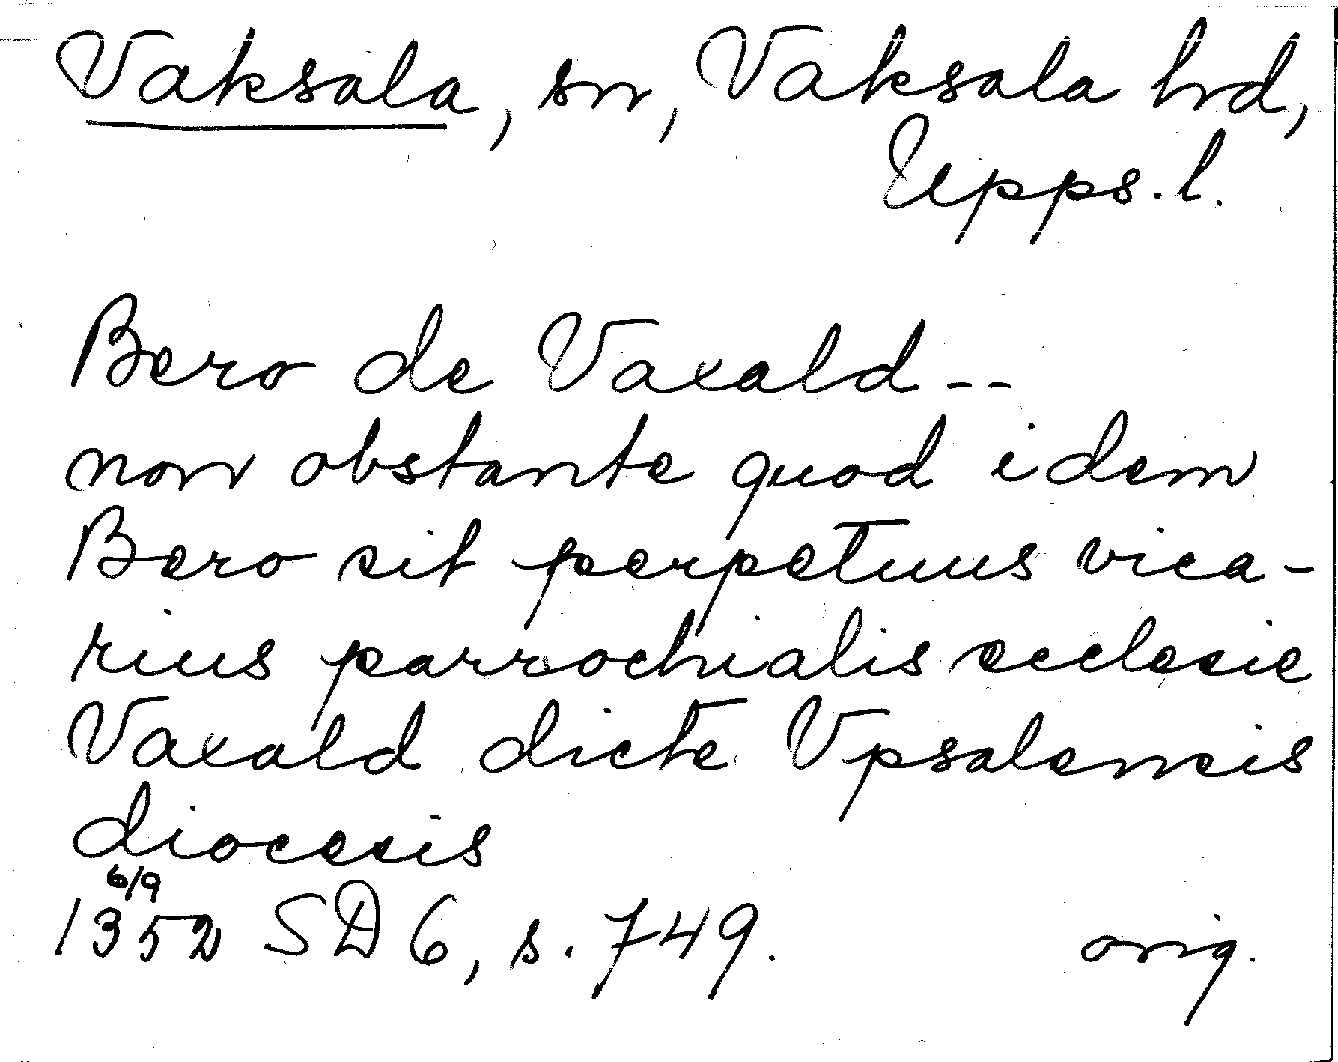 Vaksala, sn, Vaksala hd,
Upps. l.
Bero de Vaxald--
non obstante quod idem
Bero sit perpetuus vica-
rius parrochialis ecclesie
Vaxald dicte Vpsalensis
diocesis
6/9
1352 SD 6, s. 749. orig.